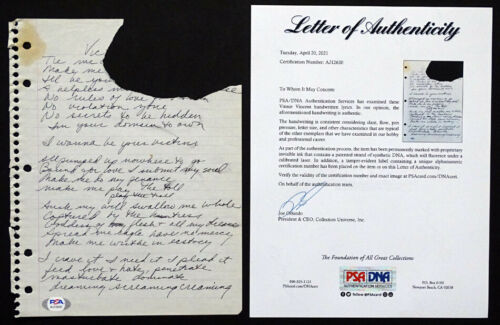 Vic
Tie me
Make me
I'll be you
A helpless
No rules of love
No violation gone
No secrets to be hidden
In your domain to own
I wanna be your victim
All pumped up nowhere to go
for love I submit my soul
Make me to my
make me play the roll
play the role
my will swallow me whole
Captured by the huntress
Goddess of flesh & all my dreams
Spread me eagle have no mercy
Make me writhe in ecstasy!
I crave it I need it I plead it
feed love & hate, penetrate
masturbate dominate
dreaming screaming creaming
PSA
Letter of Authenticity
Tuesday, April 20, 2021
Certification Number:
To Whom It May Concern:
PSA/DNA Authentication Services has examined these
Vinnie Vincent handwritten lyrics. In our opinion, the
aforementioned handwriting is authentic.
The handwriting is consistent considering slant, flow, pen
pressure, letter size, and other characteristics that are typical
of the other exemplars that we have examined in our hobby
and professional career.
As part of the authentication, the item has been permanently marked with proprietary
invisible ink that contains a patented strand of synthetic DNA, which will fluoresce under a
calibrated laser. In addition, a tamper-evident label containing a unique alphanumeric
certification number has been placed on the item or on this Letter of Authenticity.
Verify the validity of the certification number and exact image at PSAcard.com/DNAcert.
On behalf of the authentication team,
Joe Orlando
President & CEO, Collectors Universe, Inc.
The Foundation of All Great Collections
PSA DNA
AUTHENTICATION SERVICES
PSAcard.com/DNAcert
P.O. Box
Newport Beach, CA